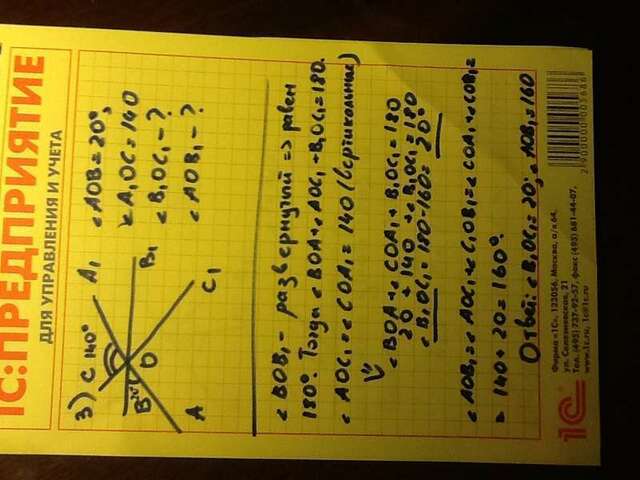 1С:ПРЕДПРИЯТИЕ
ДЛЯ УПРАВЛЕНИЯ И УЧЕТА
3) C 140° A₁
B₁
B 20° O
C₁
A
<AOB=20°,
<A₁OC=140
<B₁OC₁-?
<AOB₁-?
<BOB₁- развернутый => равен
180°. Тогда <BOA+<AOC₁+B₁OC₁=180.
<AOC₁=<COA₁=140 (вертикальные)
<BOA+<COA₁+B₁OC₁=180
20+140+<B₁OC₁=180
<B₁OC₁=180-160=20°
<AOB₁=<AOC₁+<C₁OB₁=<COA₁+<COB₁=
= 140+20=160°.
Ответ: <B₁OC₁=20; <AOB₁=160
1С
Фирма «1С», 123056, Москва, а/я 64,
ул. Селезневская, 21
Тел. (495) 737-92-57, факс (495) 681-44-07,
www.1c.ru, 1c@1c.ru